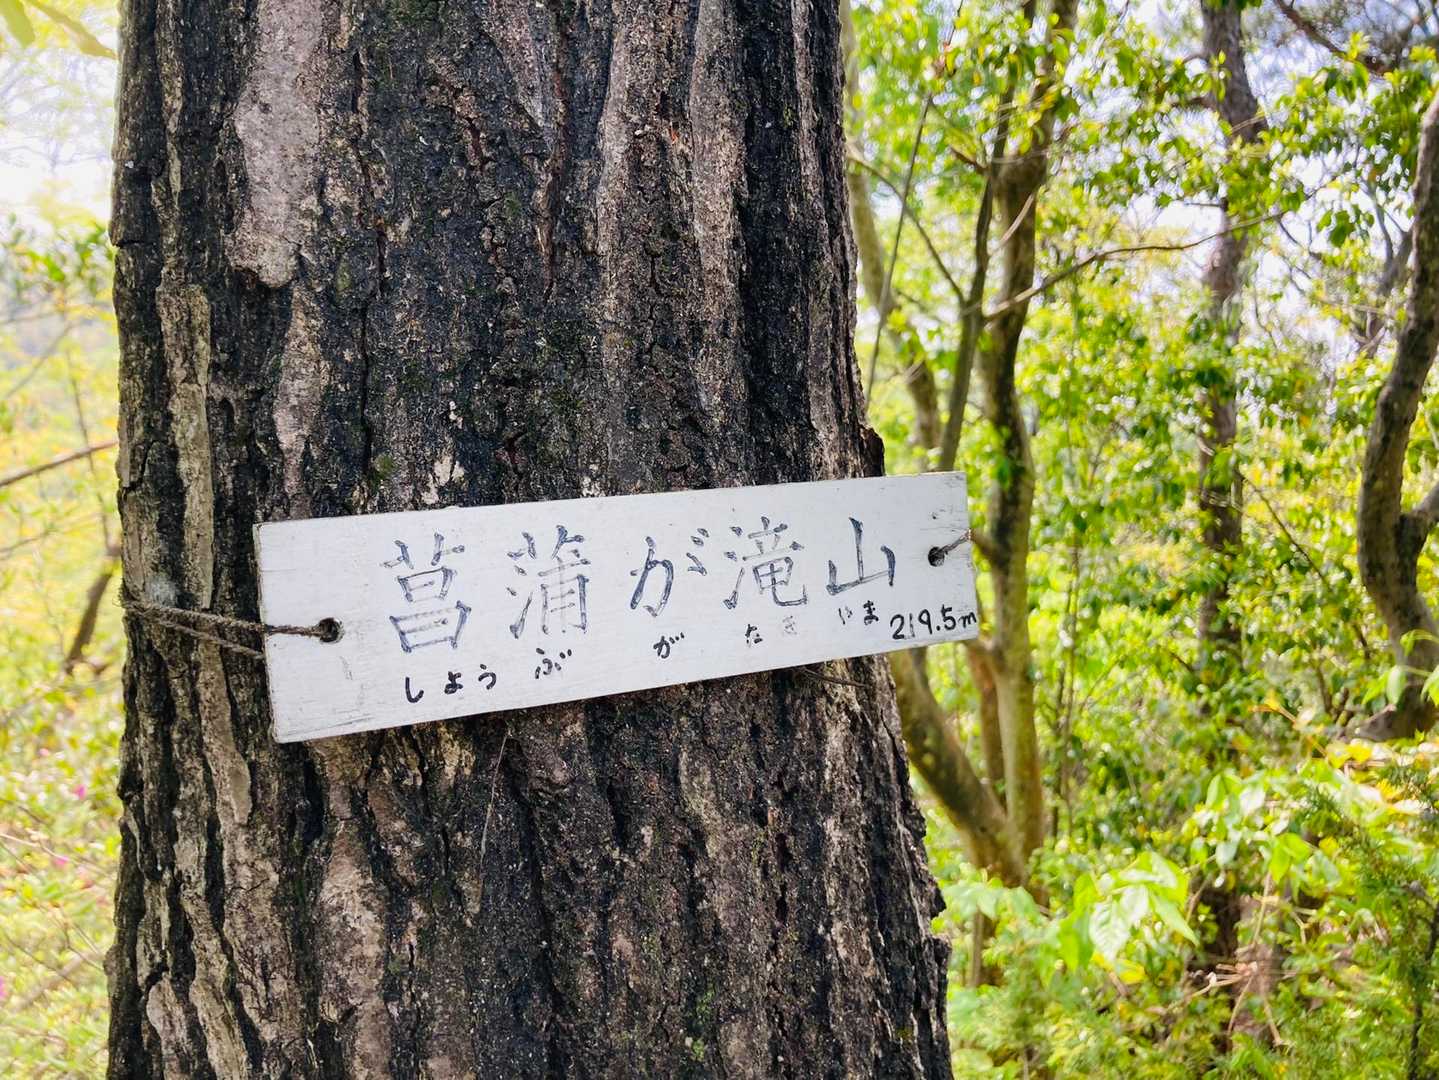 菖蒲が滝山
しょうぶ が たき やま 219.5m